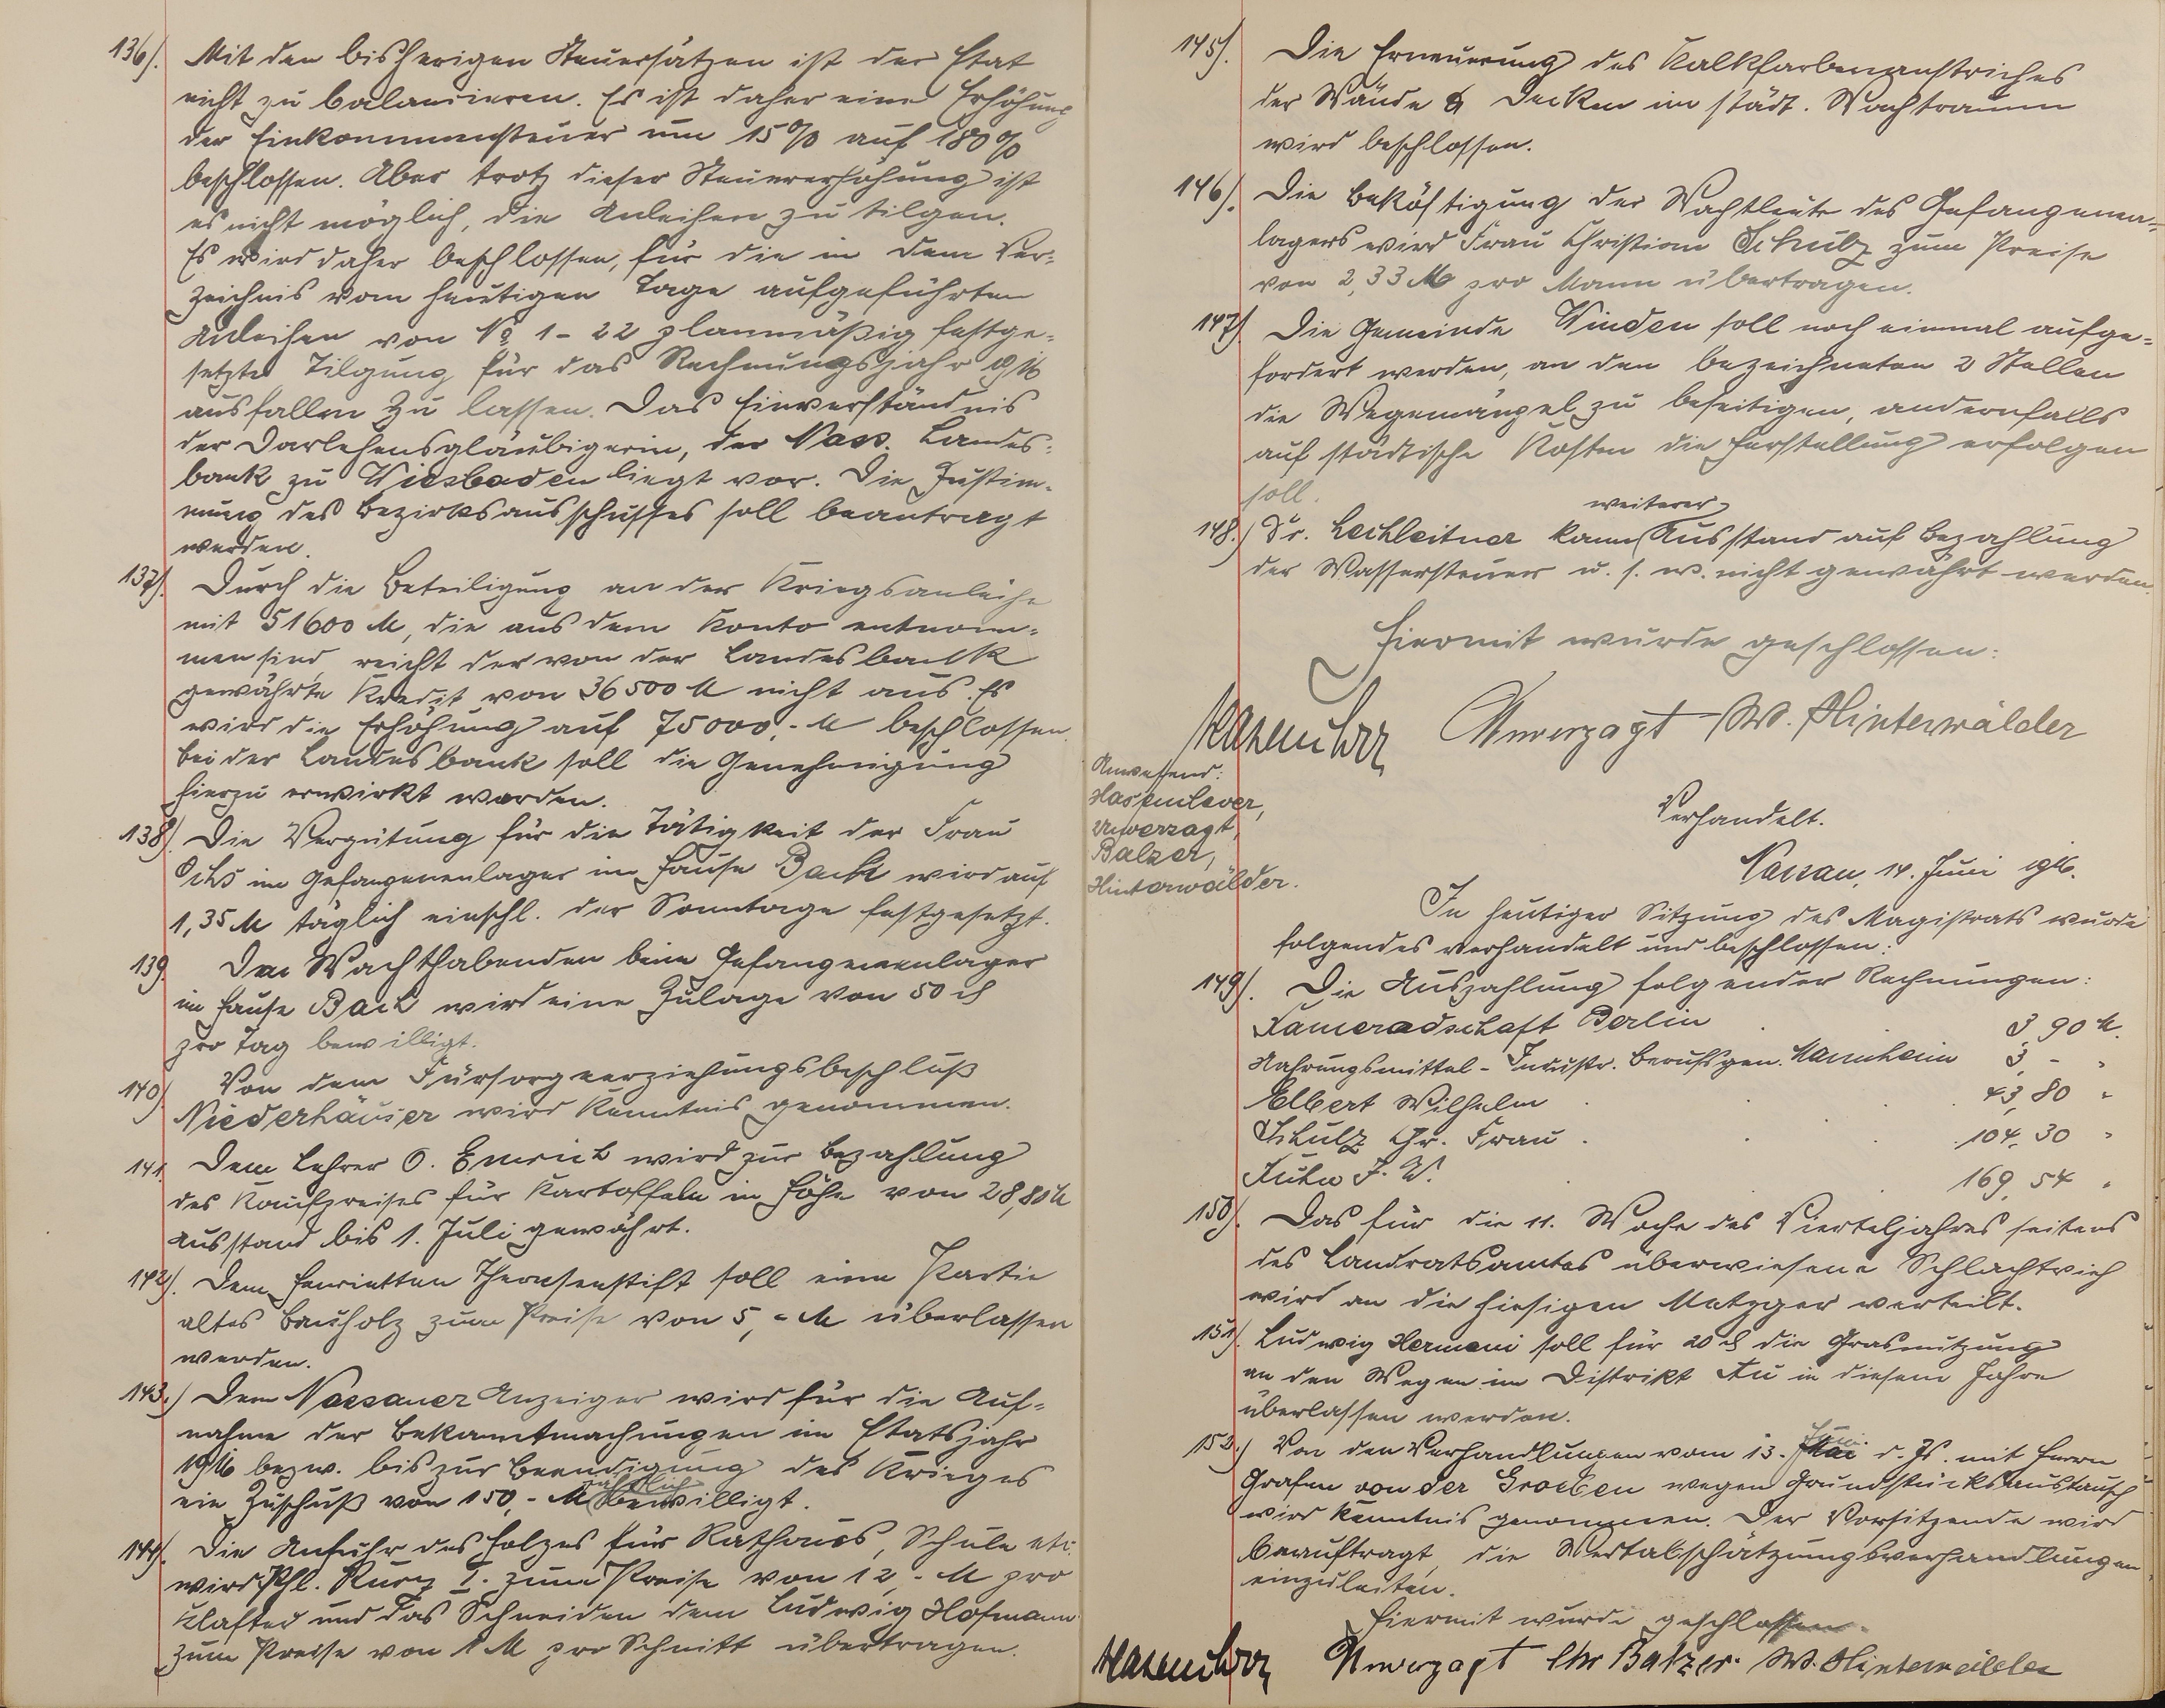 136). Mit den bisherigen Steuersätzen ist der Etat
nicht zu balancieren. Es ist daher eine Erhöhung
der Einkommensteuer um 15% auf 180%
beschlossen. Aber trotz dieser Steuererhöhung ist
es nicht möglich, die Anleihen zu tilgen.
Es wird daher beschlossen, für die in dem Ver-
zeichnis vom heutigen Tage aufgeführten
Anleihen von No 1-22 planmäßig festge-
setzte Tilgung für das Rechnungsjahr 1916
ausfallen zu lassen. Das Einverständnis
der Darlehensgläubigerin, der Nass. Landes-
bank zu Wiesbaden liegt vor. Die Zustim-
mung des Bezirksausschusses soll beantragt
werden.
137). Durch die Beteiligung an der Kriegsanleihe
mit 51600 M, die aus dem Konto entnom-
men sind, reicht der von der Landesbank
gewährte Kredit von 36500 M nicht aus. Es
wird die Erhöhung auf 75000,- M beschlossen.
Bei der Landesbank soll die Genehmigung
hierzu erwirkt werden.
138). Die Vergütung für die Tätigkeit der Frau
Ochs im Gefangenenlager im Hause Bach wird auf
1,35 M täglich einschl. der Sonntage festgesetzt.
139. Dem Wachthabenden beim Gefangenenlager
im Hause Bach wird eine Zulage von 50 d
pro Tag bewilligt.
140) Von dem Fürsorgeerziehungsbeschluß
Niederhäuser wird Kenntnis genommen.
141. Dem Lehrer O. Emrich wird zur Bezahlung
des Kaufpreises für Kartoffeln in Höhe von 28,80 M
Ausstand bis 1. Juli gewährt.
142). Dem Henrietten Theresenstift soll eine Partie
altes Bauholz zum Preise von 5,- M überlassen
werden.
143.) Dem Nassauer Anzeiger wird für die Auf-
nahme der Bekanntmachungen im Etatsjahr
1916 bezw. bis zur Beendigung des Krieges
jährlich
ein Zuschuß von 150,- M bewilligt.
144). Die Anfuhr des Holzes für Rathaus, Schule etc.
wird Phl. Kurz I. zum Preise von 12,- M pro
Klafter und das Schneiden dem Ludwig Hofmann
zum Preise von 1 M pro Schnitt übertragen.
145). Die Erneuerung des Kalkfarbenanstriches
der Wände & Decken im städt. Wachtraum
wird beschlossen.
146). Die Beköstigung der Wachtleute des Gefangenen-
lagers wird Frau Christian Schulz zum Preise
von 2,33 M pro Mann übertragen.
147) Die Gemeinde Winden soll noch einmal aufge-
fordert werden, an den bezeichneten 2 Stellen
die Wegemängel zu beseitigen, andernfalls
auf städtische Kosten die Herstellung erfolgen
soll.
weiterer
148.) Fr. Lechleitner kann Ausstand auf Bezahlung
der Wassersteuer u. s. w. nicht gewährt werden.
Hiermit wurde geschlossen:
Hasenclever Unverzagt W. Hinterwälder
Anwesend:
Hasenclever,
Unverzagt,
Balzer,
Hinterwälder.
Verhandelt.
Nassau, 14. Juni 1916.
In heutiger Sitzung des Magistrats wurde
folgendes verhandelt und beschlossen:
149). Die Auszahlung folgender Rechnungen:
Kameradschaft Berlin 3,90 M.
Nahrungsmittel-Industr. Berufsgen. Mannheim 3,- "
Elbert Wilhelm 43,80 "
Schulz Chr. Frau 104,30 "
Kuhn J. W. 169,54 "
150). Das für die 11. Woche des Vierteljahres seitens
des Landratsamtes überwiesene Schlachtvieh
wird an die hiesigen Metzger verteilt.
151). Ludwig Hermani soll für 20 M die Grasnutzung
an den Wegen im Distrikt Au in diesem Jahre
überlassen werden.
Juni
152.) Von den Verhandlungen vom 13. Mai d. Js. mit Herrn
Grafen von der Groeben wegen Grundstücksaustausch
wird Kenntnis genommen. Der Vorsitzende wird
beauftragt, die Wertabschätzungsverhandlungen
einzuleiten.
Hiermit wurde geschlossen.
Hasenclever Unverzagt Chr Balzer. W. Hinterwälder